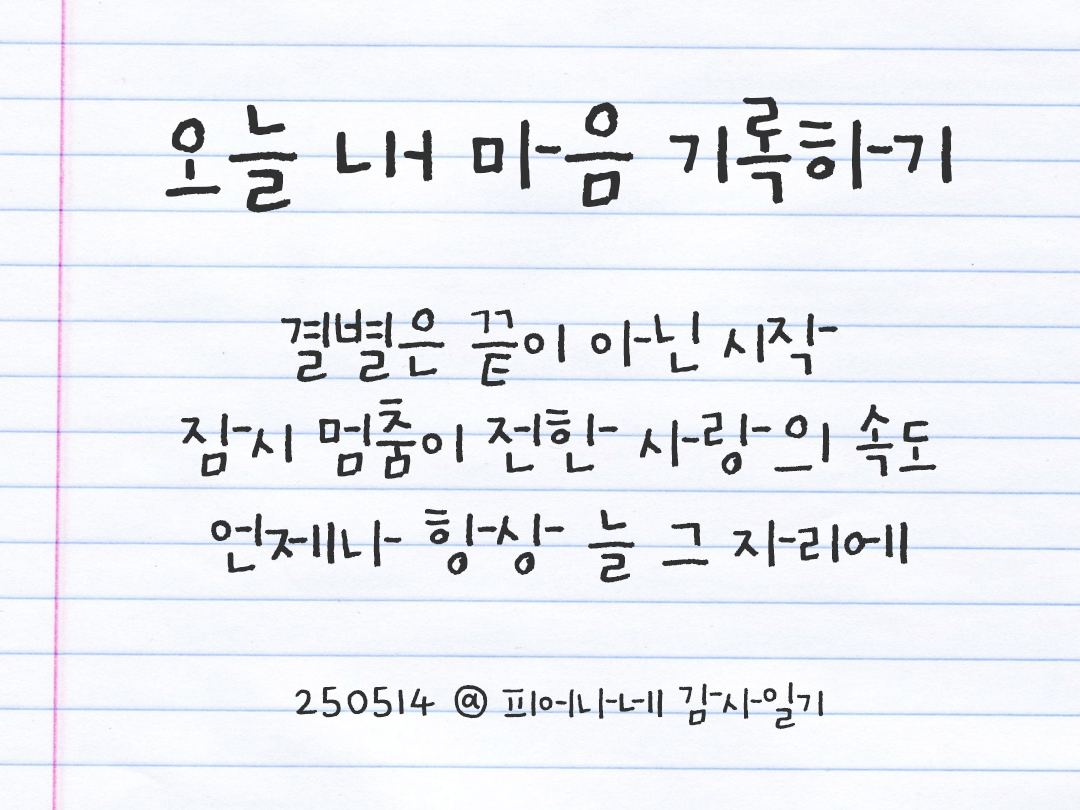 오늘 내 마음 기록하기
결별은 끝이 아닌 시작
잠시 멈춤이 전한 사랑의 속도
언제나 항상 늘 그 자리에
250514 @ 피어나네 감사일기